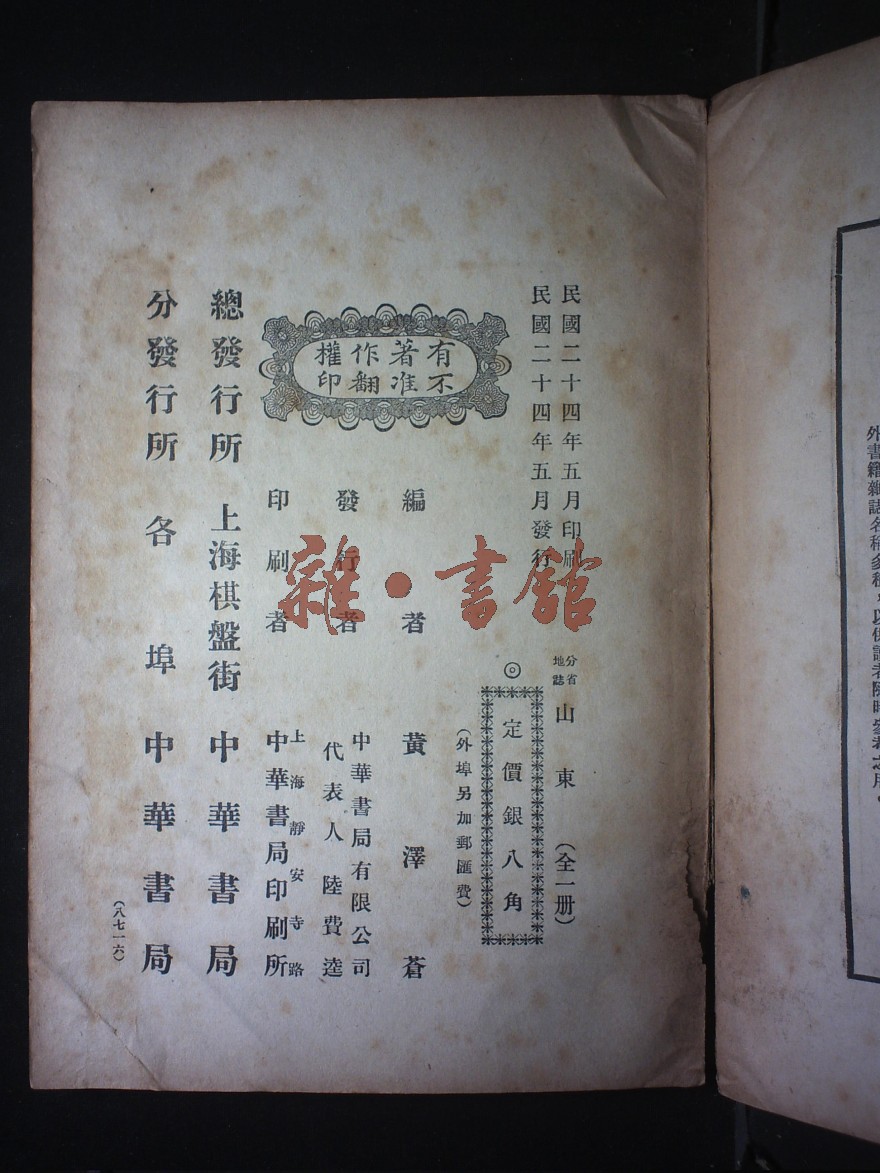 外書籍雜誌名稱多種，以供讀者隨時參考之用。
民國二十四年五月印刷
民國二十四年五月發行
分省地誌 山東 （全一册）
◎定價銀八角
（外埠另加郵匯費）
有著作權
不准翻印
編者 黃澤蒼
發行者 中華書局有限公司
代表人 陸費逵
印刷者 上海靜安寺路
中華書局印刷所
總發行所 上海棋盤街 中華書局
分發行所 各埠 中華書局
（八七一六）
雜·書館